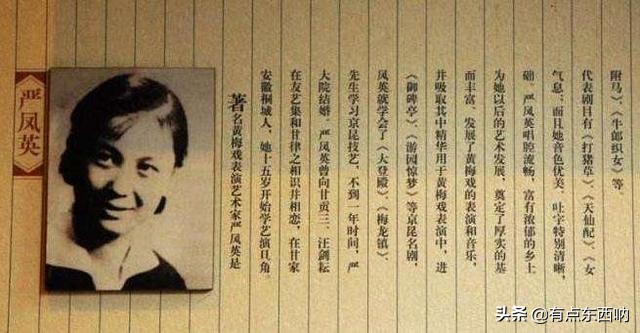 严凤英
著名黄梅戏表演艺术家严凤英是
安徽桐城人，她十五岁开始学艺演旦角。
在友艺集和甘律之相识并相恋，在甘家
大院结婚。严凤英曾向甘贡三、汪剑耘
先生学习京昆技艺，不到一年时间，严
凤英就学会了《大登殿》、《梅龙镇》、
《御碑亭》、《游园惊梦》等京昆名剧，
并吸取其中精华用于黄梅戏表演中，进
而丰富、发展了黄梅戏的表演和音乐，
为她以后的艺术发展，奠定了厚实的基
础。严凤英唱腔流畅，富有浓郁的乡土
气息；而且她音色优美、吐字特别清晰，
代表剧目有《打猪草》、《天仙配》、《女
附马》、《牛郎织女》等。
头条 @有点东西呐